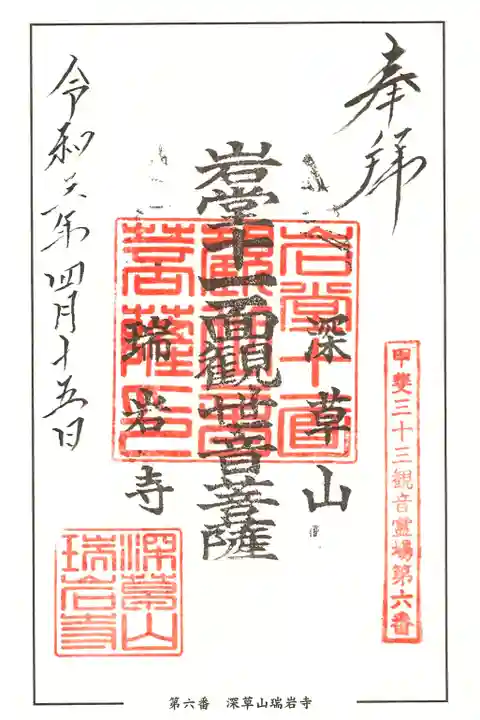 奉拝
甲斐三十三観音霊場第六番
深草山
岩堂十一面観世音菩薩
瑞岩寺
令和六年四月十五日
岩堂十一面
観世音
菩薩印
深草山
瑞岩寺
第六番 深草山瑞岩寺